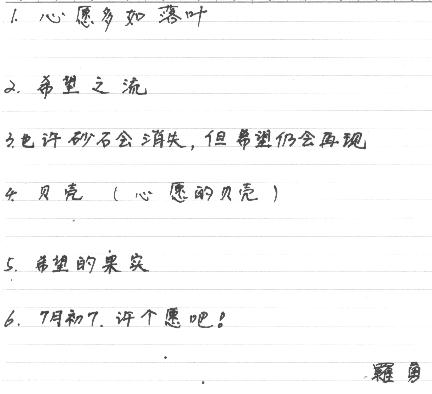 1. 心愿多如落叶
2. 希望之流
3. 也许砂石会消失, 但希望仍会再现
4. 贝壳 ( 心愿的贝壳 )
5. 希望的果实
6. 7月初7. 许个愿吧!
羅勇